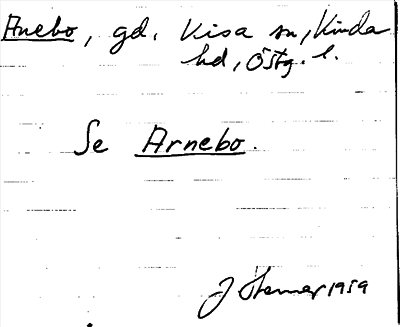 Anebo, gd. Kisa sn, Kinda
hd, Östg. l.
Se Arnebo.
J 1959